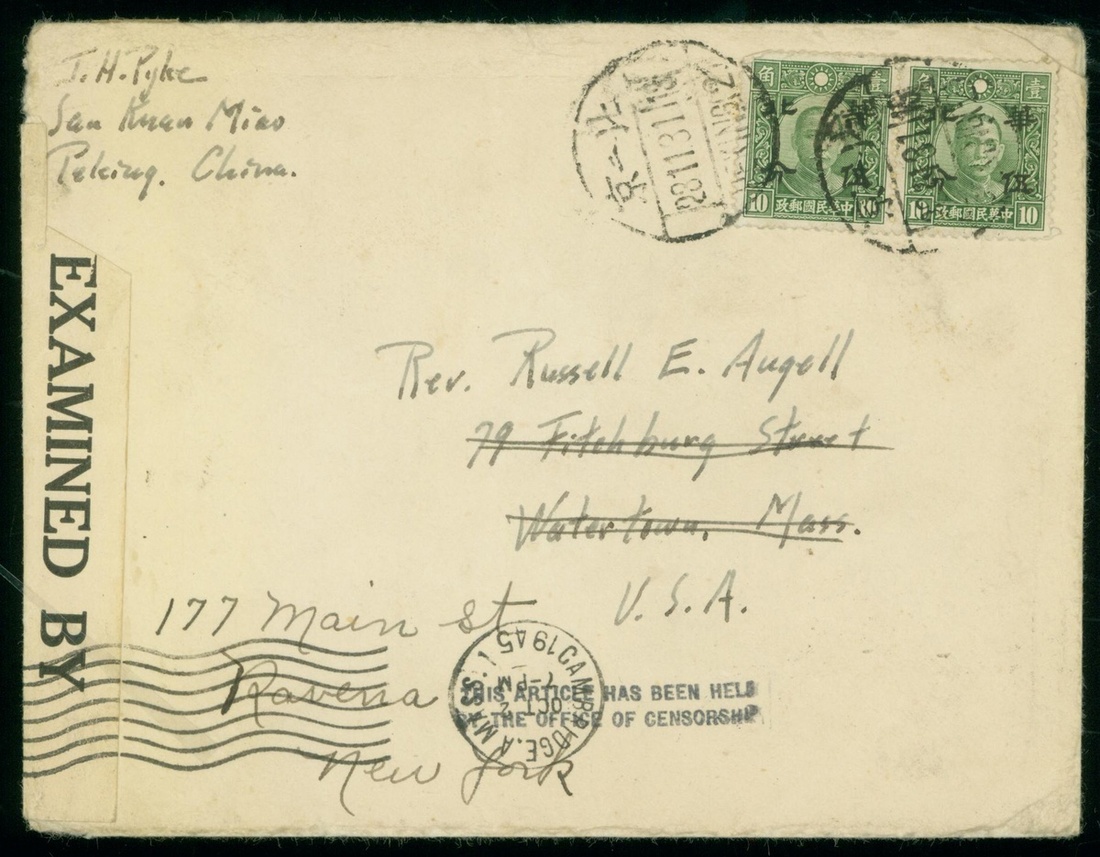 J. H. Pyke
San Kuan Miao
Peking, China.
EXAMINED BY
京一北
角 壹
北 華
分 伍
10 10
政郵國民華中
壹
北 華
分 伍
10 10
政郵國民華中
Rev. Russell E. Angell
79 Fitchburg Street
Watertown, Mass.
U. S. A.
177 Main St
Ravena
New York
CAMBRIDGE, A MASS. 1
OCT
7-PM
1945
THIS ARTICLE HAS BEEN HELD
BY THE OFFICE OF CENSORSHIP